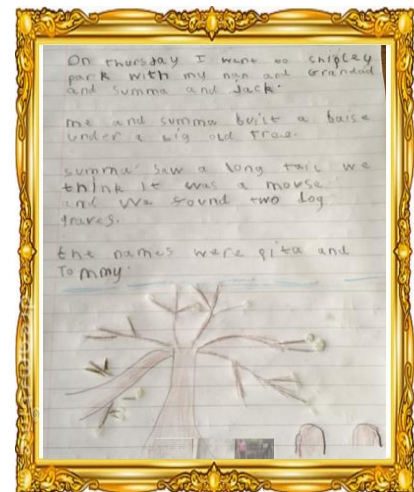 On thursday I went to shipley
park with my nan and Grandad
and summa and Jack.
me and summa built a baise
under a big old tree.
summa saw a long tail we
think it was a mouse
and we found two dog
graves.
the names were gita and
Tommy.